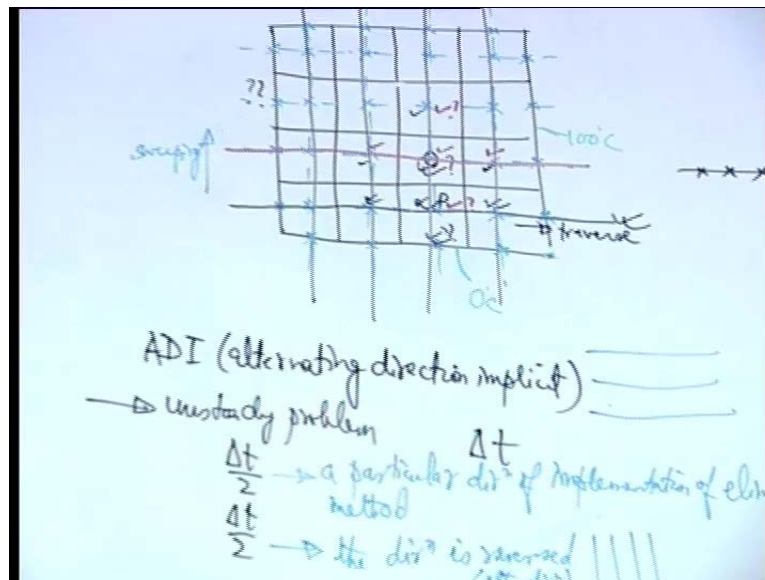 ??
✓✓?
100°C
sweeping
?
✓?
traverse
?
0°C
ADI (alternating direction implicit)
→ unsteady problem
Δt
Δt/2 → a particular dirⁿ of implementation of elim
method
Δt/2 → the dirⁿ is reversed